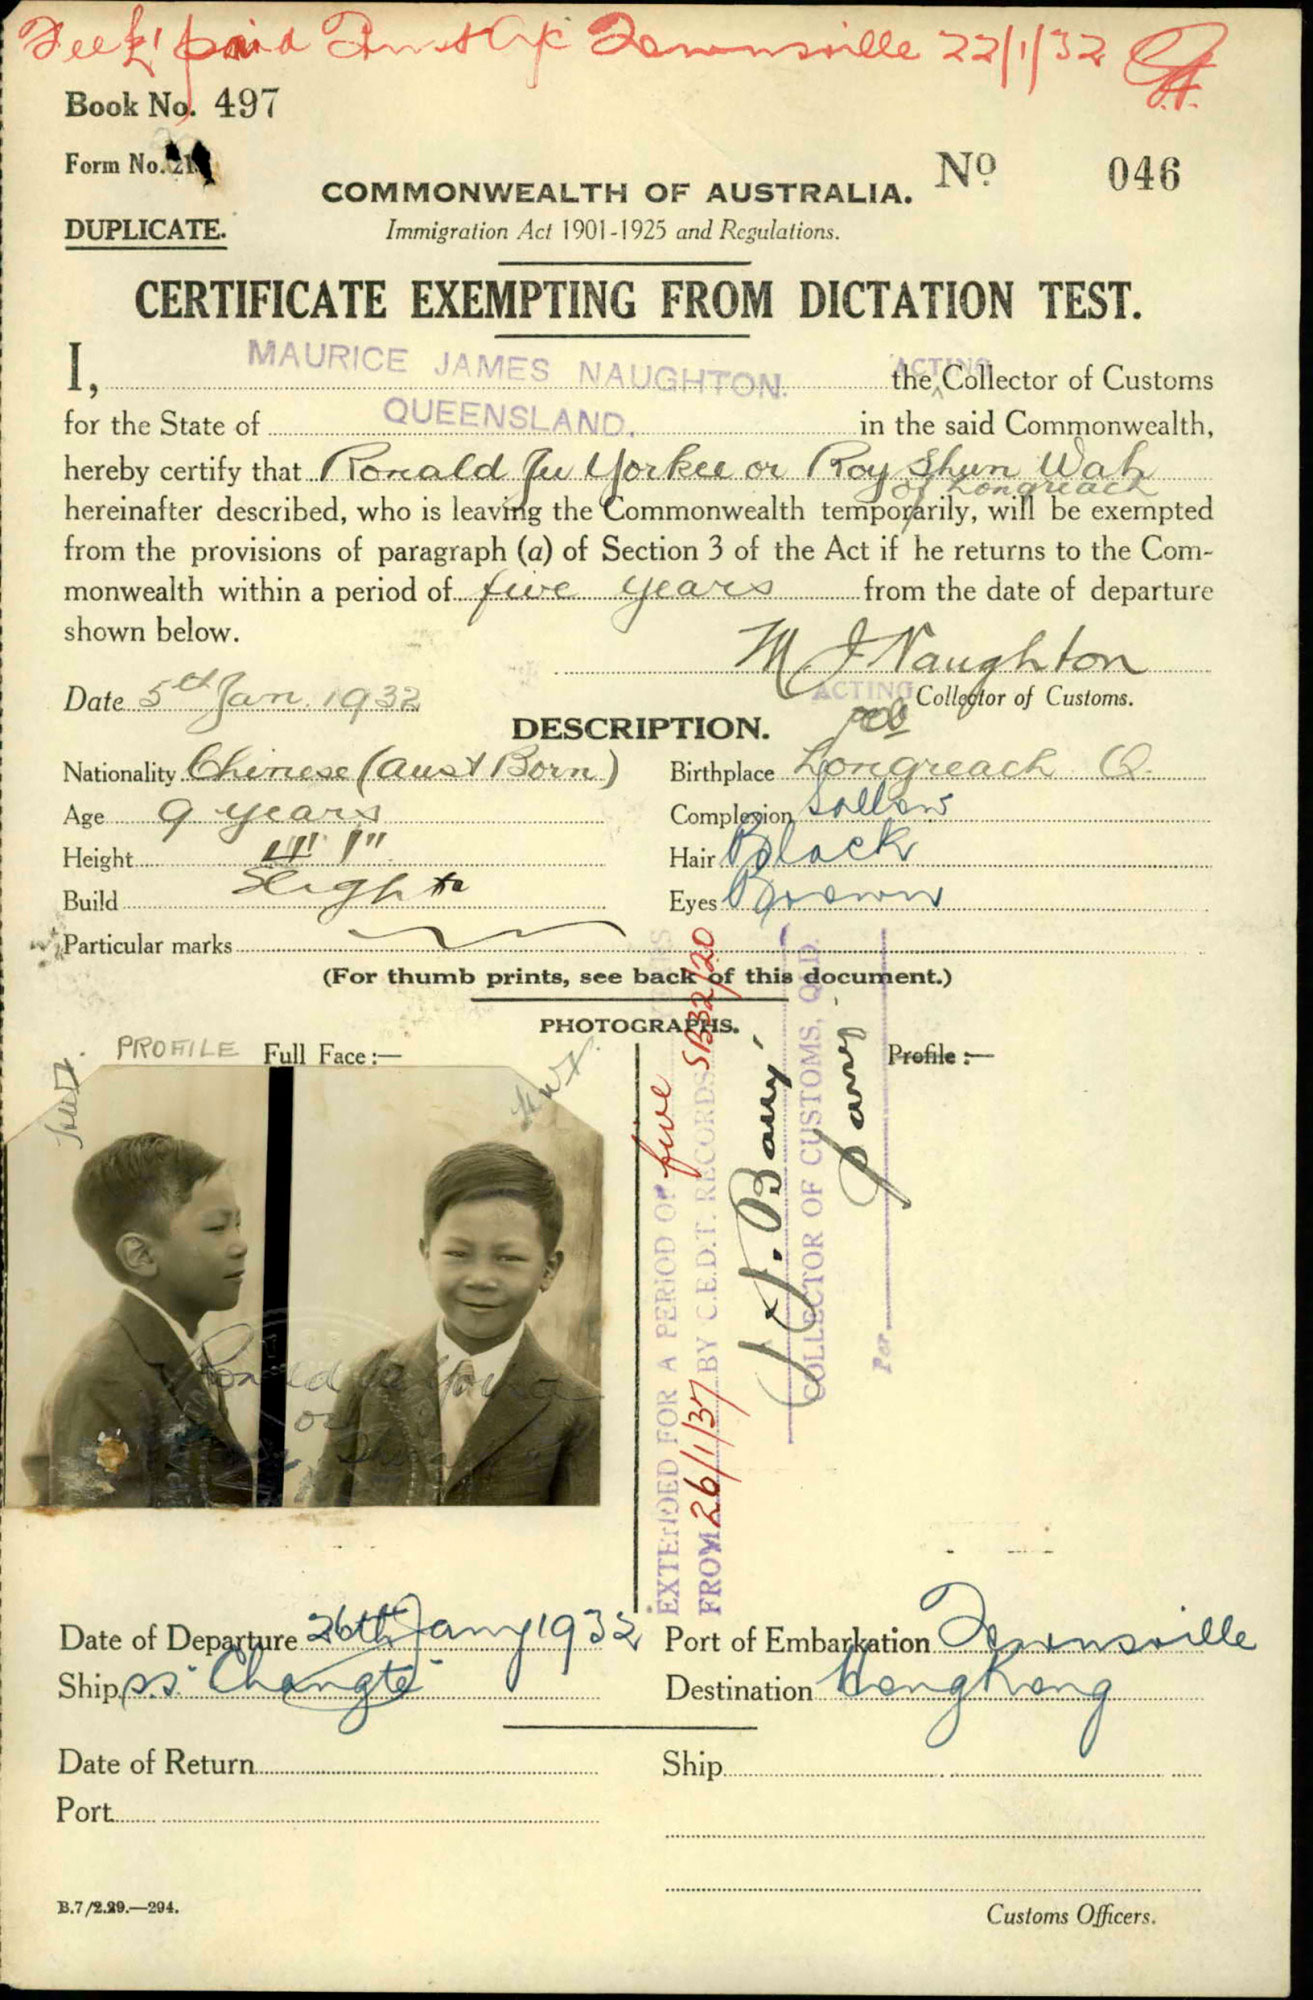 Fee £1 paid Trust A/c Townsville 22/1/32
Book No. 497
Form No. 21.
DUPLICATE.
COMMONWEALTH OF AUSTRALIA.
No 046
Immigration Act 1901-1925 and Regulations.
CERTIFICATE EXEMPTING FROM DICTATION TEST.
I, MAURICE JAMES NAUGHTON. the ^ ACTING Collector of Customs
for the State of QUEENSLAND. in the said Commonwealth,
hereby certify that Ronald Ju Yorkee or Roy Shun Wah
of Longreach
hereinafter described, who is leaving the Commonwealth temporarily, will be exempted
from the provisions of paragraph (a) of Section 3 of the Act if he returns to the Com-
monwealth within a period of five years from the date of departure
shown below.
M J Naughton
Date 5th Jan. 1932
ACTING Collector of Customs.
DESCRIPTION.
Nationality Chinese (Aust Born)
Birthplace Longreach Q.
Age 9 years
Complexion Sallow
Height 4' 1"
Hair Black
Build Slight
Eyes Brown
Particular marks
(For thumb prints, see back of this document.)
PHOTOGRAPHS.
PROFILE Full Face :—
Profile :—
EXTENDED FOR A PERIOD OF five YEARS
FROM 26/1/37 BY C.E.D.T. RECORDS SB32/20
COLLECTOR OF CUSTOMS, QLD.
Per
Ronald
or
Date of Departure 26th Jany 1932
Port of Embarkation Townsville
Ship s.s. "Changte"
Destination Hong Kong
Date of Return
Ship
Port
B.7/2.29.—294.
Customs Officers.